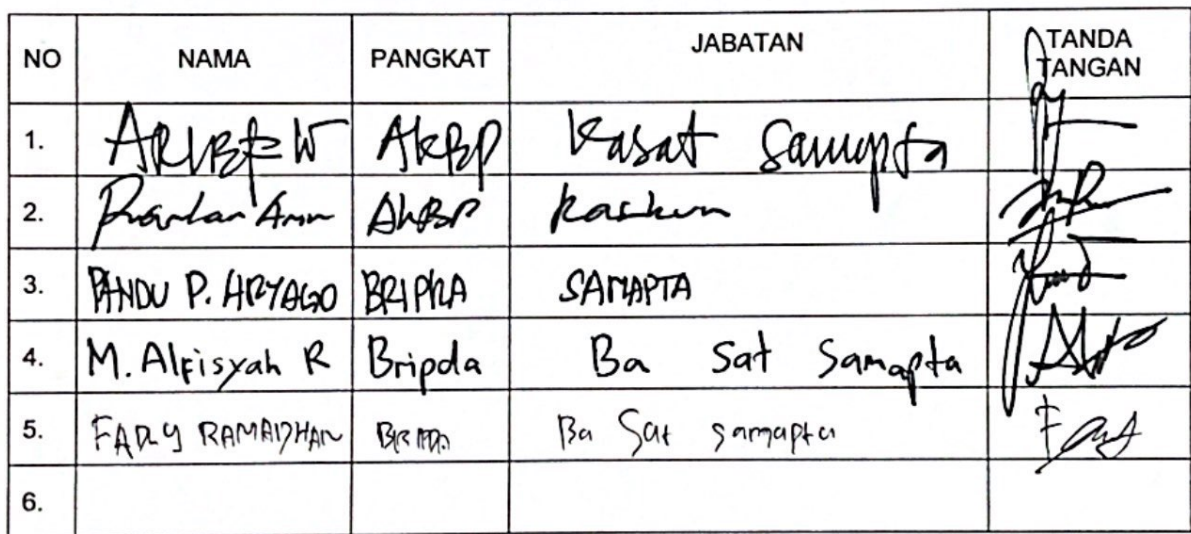 NO NAMA PANGKAT JABATAN TANDA TANGAN
1. AKBP Kasat Samapta
2. AKBP
3. PANDU P. ARYAGO BRIPKA SAMAPTA
4. M. Alfisyah R Bripda Ba Sat Samapta
5. FADLY RAMADHAN BRIPDA Ba Sat Samapta
6.